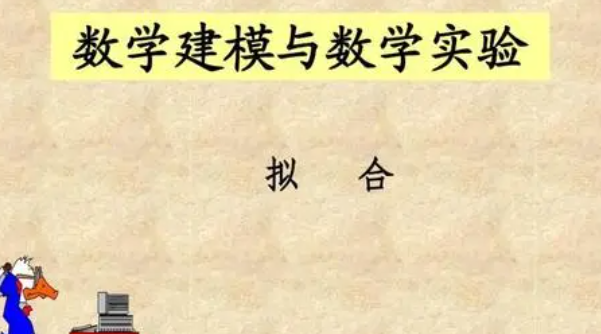 数学建模与数学实验
拟 合